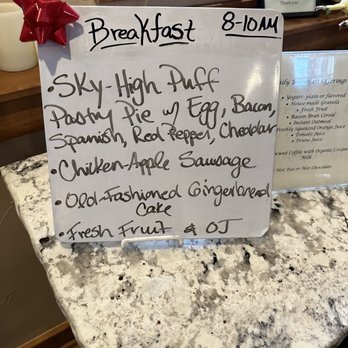 Breakfast 8-10AM
• Sky-High Puff
Pastry Pie w/ Egg, Bacon,
Spanish, Red Pepper, Cheddar
• Chicken-Apple Sausage
• Old-Fashioned Gingerbread
Cake
• Fresh Fruit & OJ
Yogurt- plain or flavored
House-made granola
• Fresh Fruit
• Raisin Bran Cereal
• Instant Oatmeal
Freshly Squeezed Orange Juice
• Tomato Juice
• Prune Juice
Coffee with Organic Cream
Milk
Hot Tea or Hot Chocolate